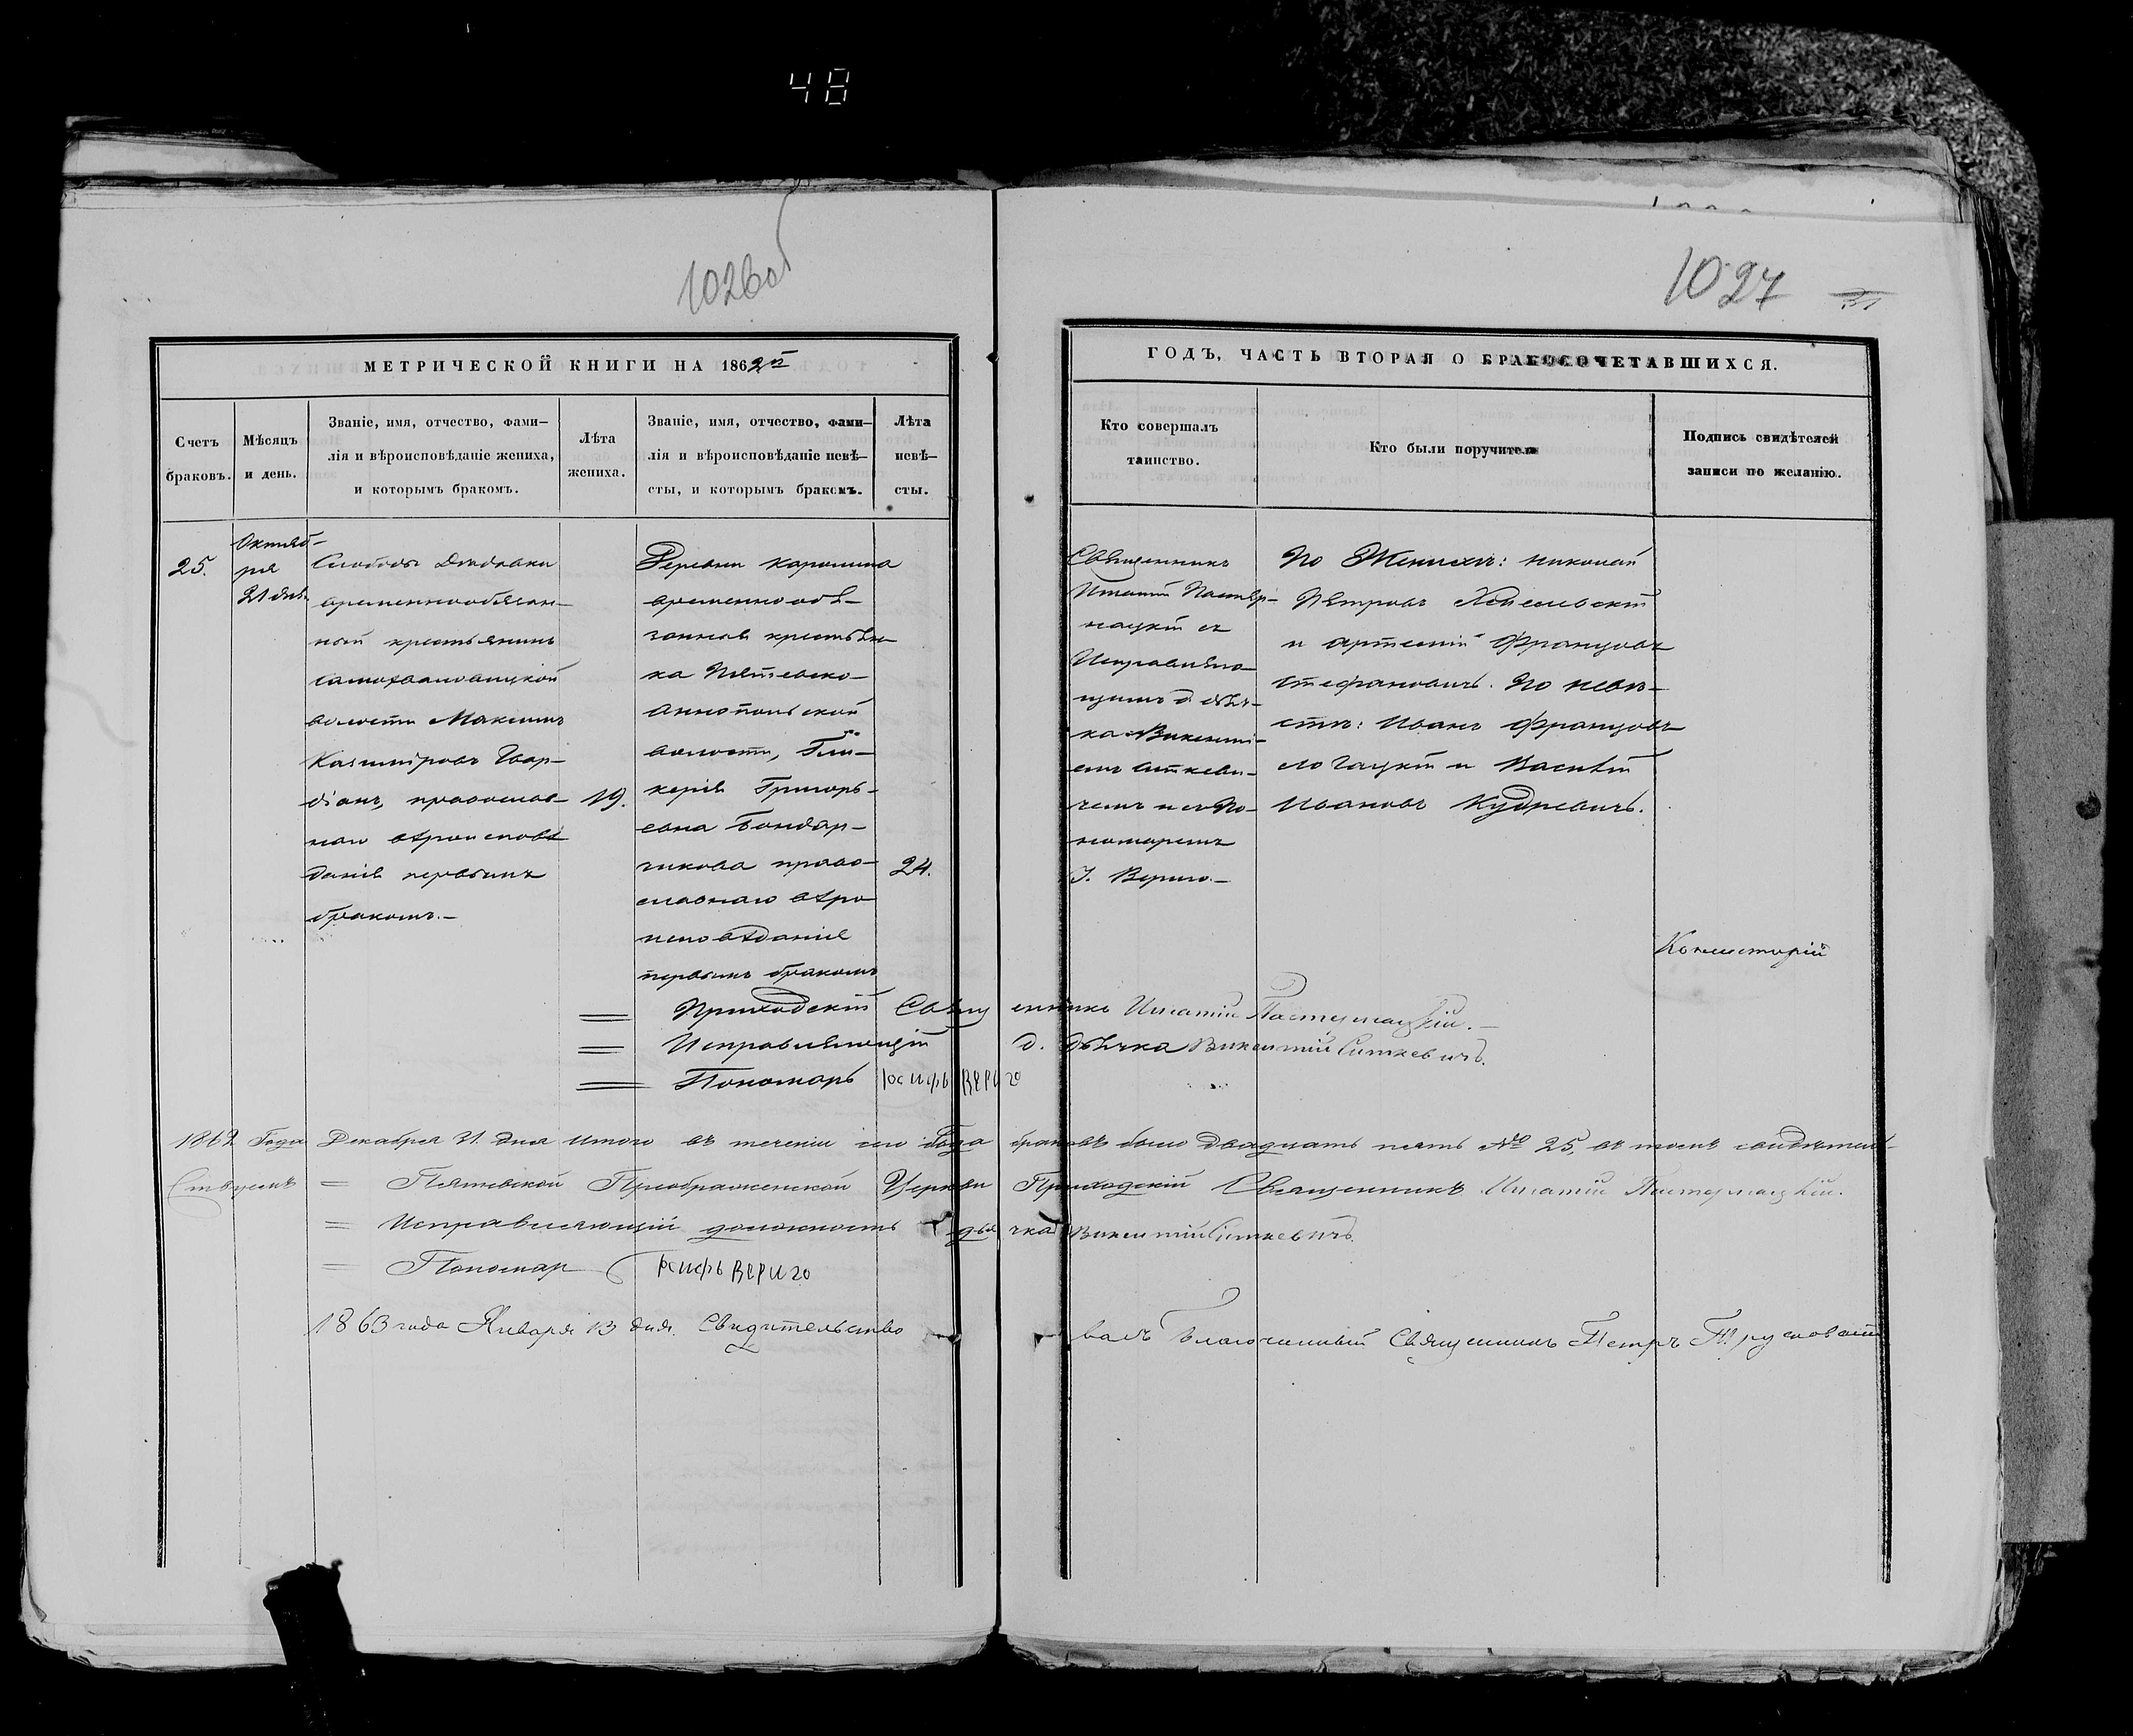 48
1026об
1027
МЕТРИЧЕСКОЙ КНИГИ НА 1862й
ГОДЪ, ЧАСТЬ ВТОРАЯ О БРАКОСОЧЕТАВШИХСЯ.
Счетъ
браковъ.
Мѣсяцъ
и день.
Званіе, имя, отчество, фами–
лія и вѣроисповѣданіе жениха,
и которымъ бракомъ.
Лѣта
жениха.
Званіе, имя, отчество, фами–
лія и вѣроисповѣданіе невѣ–
сты, и которымъ бракомъ.
Лѣта
невѣ–
сты.
Кто совершалъ
таинство.
Кто были поручители
Подпись свидѣтелей
записи по желанію.
25.
Октяб–
ря
21 дня.
Слободы
временнообязан–
ный крестьянинъ
самохваловицкой
волости Максимъ
Казиміровъ Гвар–
діанъ, православ–
наго вѣроисповѣ
данія первымъ
бракомъ.–
19.
Деревни Каролина
временнообя–
занная крестьян–
ка Пятевско–
Аннопольской
волости, Гли–
керія Григорь–
евна Бондар–
чикова право–
славнаго вѣро
исповѣданія
первымъ бракомъ
24.
Священникъ
Игнатій Пастер–
нацкій съ
Исправляю–
щимъ д. дья–
ка Викенті–
емъ Ситкеви–
чемъ и съ По–
номаремъ
І. Вериго.–
По Женихѣ: Николай
Петровъ
и Артемій Францовъ
Стефановичъ. По невѣ–
стѣ: Иванъ Францовъ
и Василій
Ивановъ Кудревичъ.
Консисторій
= Приходскій Священникъ Игнатій Пастернацкій.–
= Исправляющій д. дьячка Викентій Ситкевичъ.
= Пономарь Іосифъ Вериго
1862 Года Декабря 31. дня итого въ теченіи сего Года браковъ было двадцать пять № 25, въ томъ свидѣтель–
ствуемъ = Пятевской Преображенской Церкви Приходскій Священникъ Игнатій Пастернацкій.
= Исправляющій должность дьячка Викентій Ситкевичъ
= Пономар Іосифъ Вериго
1863 года Января 13 дня. Свидѣтельствовалъ Благочинный Священникъ Петръ